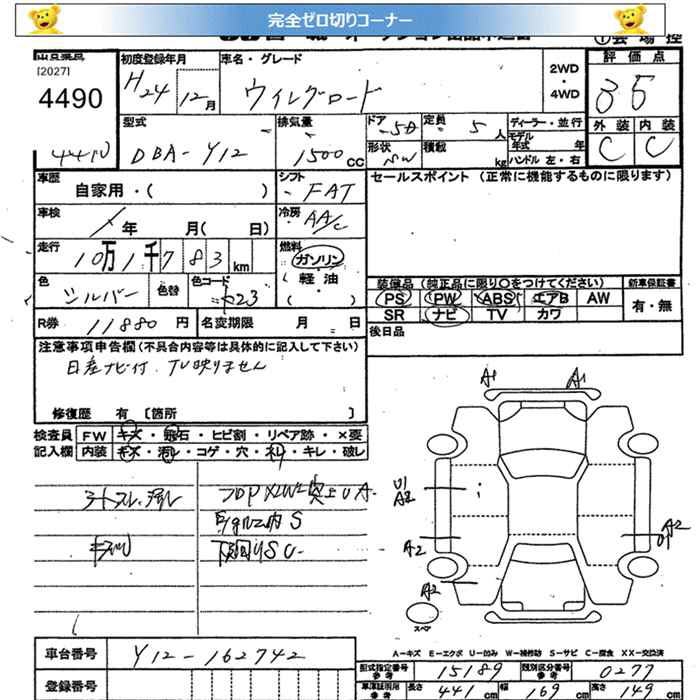 完全ゼロ切りコーナー
[2027]
4490
初度登録年月
H24 12月
車名・グレード
ウイングロード
2WD・4WD
評価点
35
外装 内装
C C
型式
DBA-Y12
排気量
1500cc
ドア 5D
形状
定員 5人
積載 kg
ディーラー・並行
モデル年式 年
ハンドル 左・右
車歴
自家用・( )
シフト
FAT
セールスポイント (正常に機能するものに限ります)
車検
年 月( 日)
冷房
AA/C
走行
10万1千783km
燃料
ガソリン・軽・油( )
色
シルバー
色替
色コード
K23
装備品 (純正品に限り○をつけてください)
PS PW ABS エアB AW
SR ナビ TV カワ
新車保証書
有・無
R券 11880円
名変期限 月 日
後日品
注意事項申告欄 (不具合内容等は具体的に記入して下さい)
日産ナビ付.TV映りません
修復歴 有 〔箇所 〕
検査員記入欄
FW キズ・飛石・ヒビ割・リペア跡・×要
内装 キズ・汚レ・コゲ・穴・ネレ・キレ・破レ
シートスレ、汚レ
A1 A1
U1
A2
A2
A2
A2
U1
スペア
A-キズ E-エクボ U-凹み W-補修跡 S-サビ C-腐食 XX-交換済
車台番号 Y12-162742
登録番号
型式指定番号 参考 15189
類別区分番号 参考 0277
車庫証明用 参考 長さ 441cm 幅 169cm 高さ 149cm